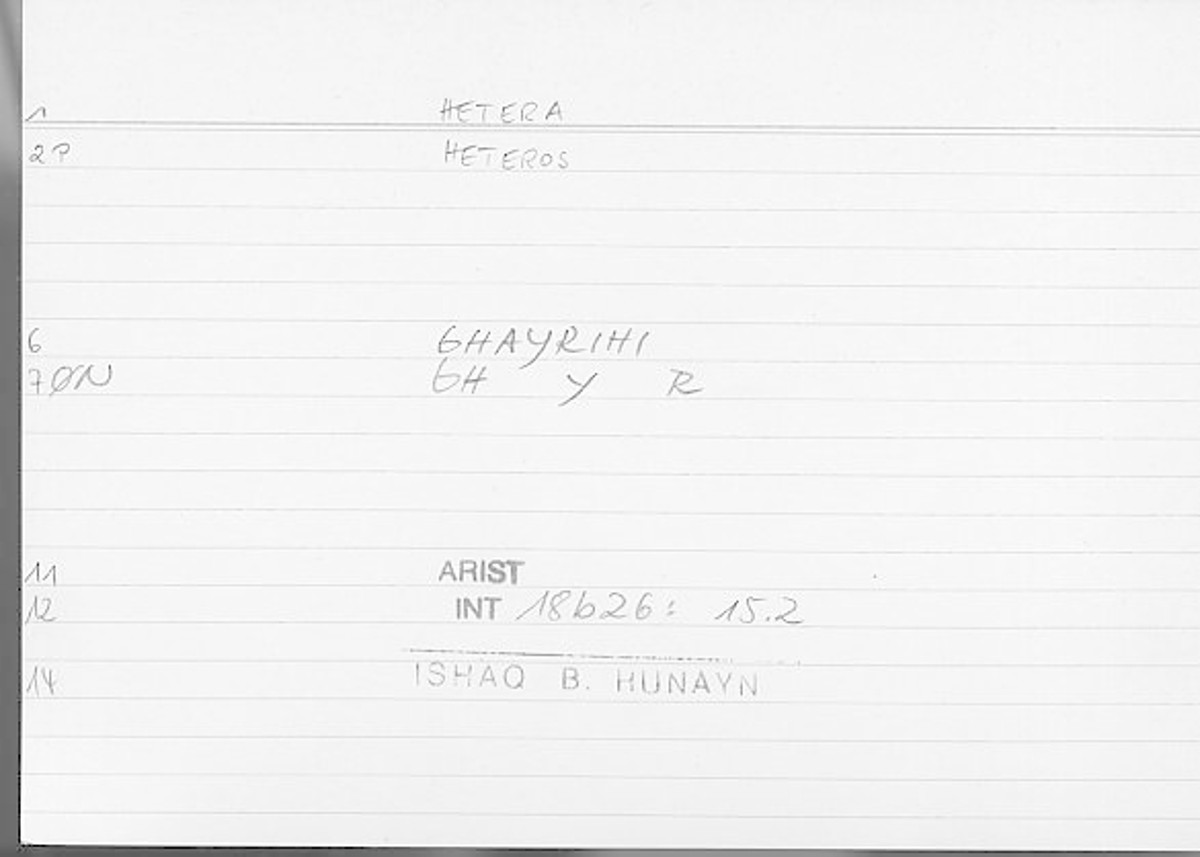 1 HETERA
2P HETEROS
6 GHAYRIHI
7ØN GH Y R
11 ARIST
12 INT 18b26: 15.2
14 ISHAQ B. HUNAYN